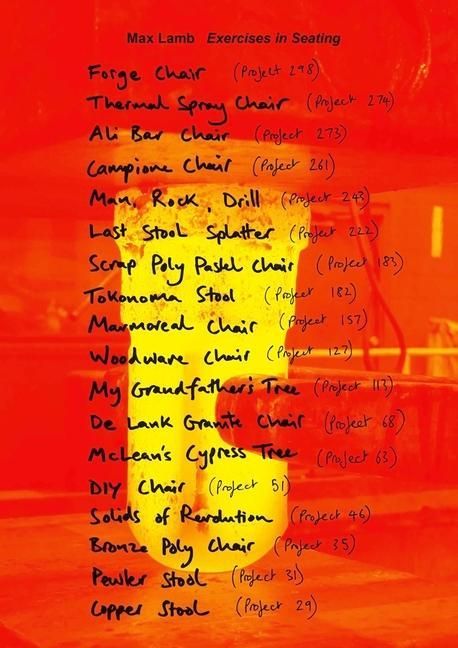 Max Lamb Exercises in Seating
Forge Chair (Project 298)
Thermal Spray Chair (Project 274)
Ali Bar Chair (Project 273)
Campione Chair (Project 261)
Man, Rock, Drill (Project 243)
Last Stool Splatter (Project 222)
Scrap Poly Pastel Chair (Project 183)
Tokonoma Stool (Project 182)
Marmoreal Chair (Project 157)
Woodware Chair (Project 127)
My Grandfather's Tree (Project 113)
De Lank Granite Chair (Project 68)
McLean's Cypress Tree (Project 63)
DIY Chair (Project 51)
Solids of Revolution (Project 46)
Bronze Poly Chair (Project 35)
Pewter Stool (Project 31)
Copper Stool (Project 29)